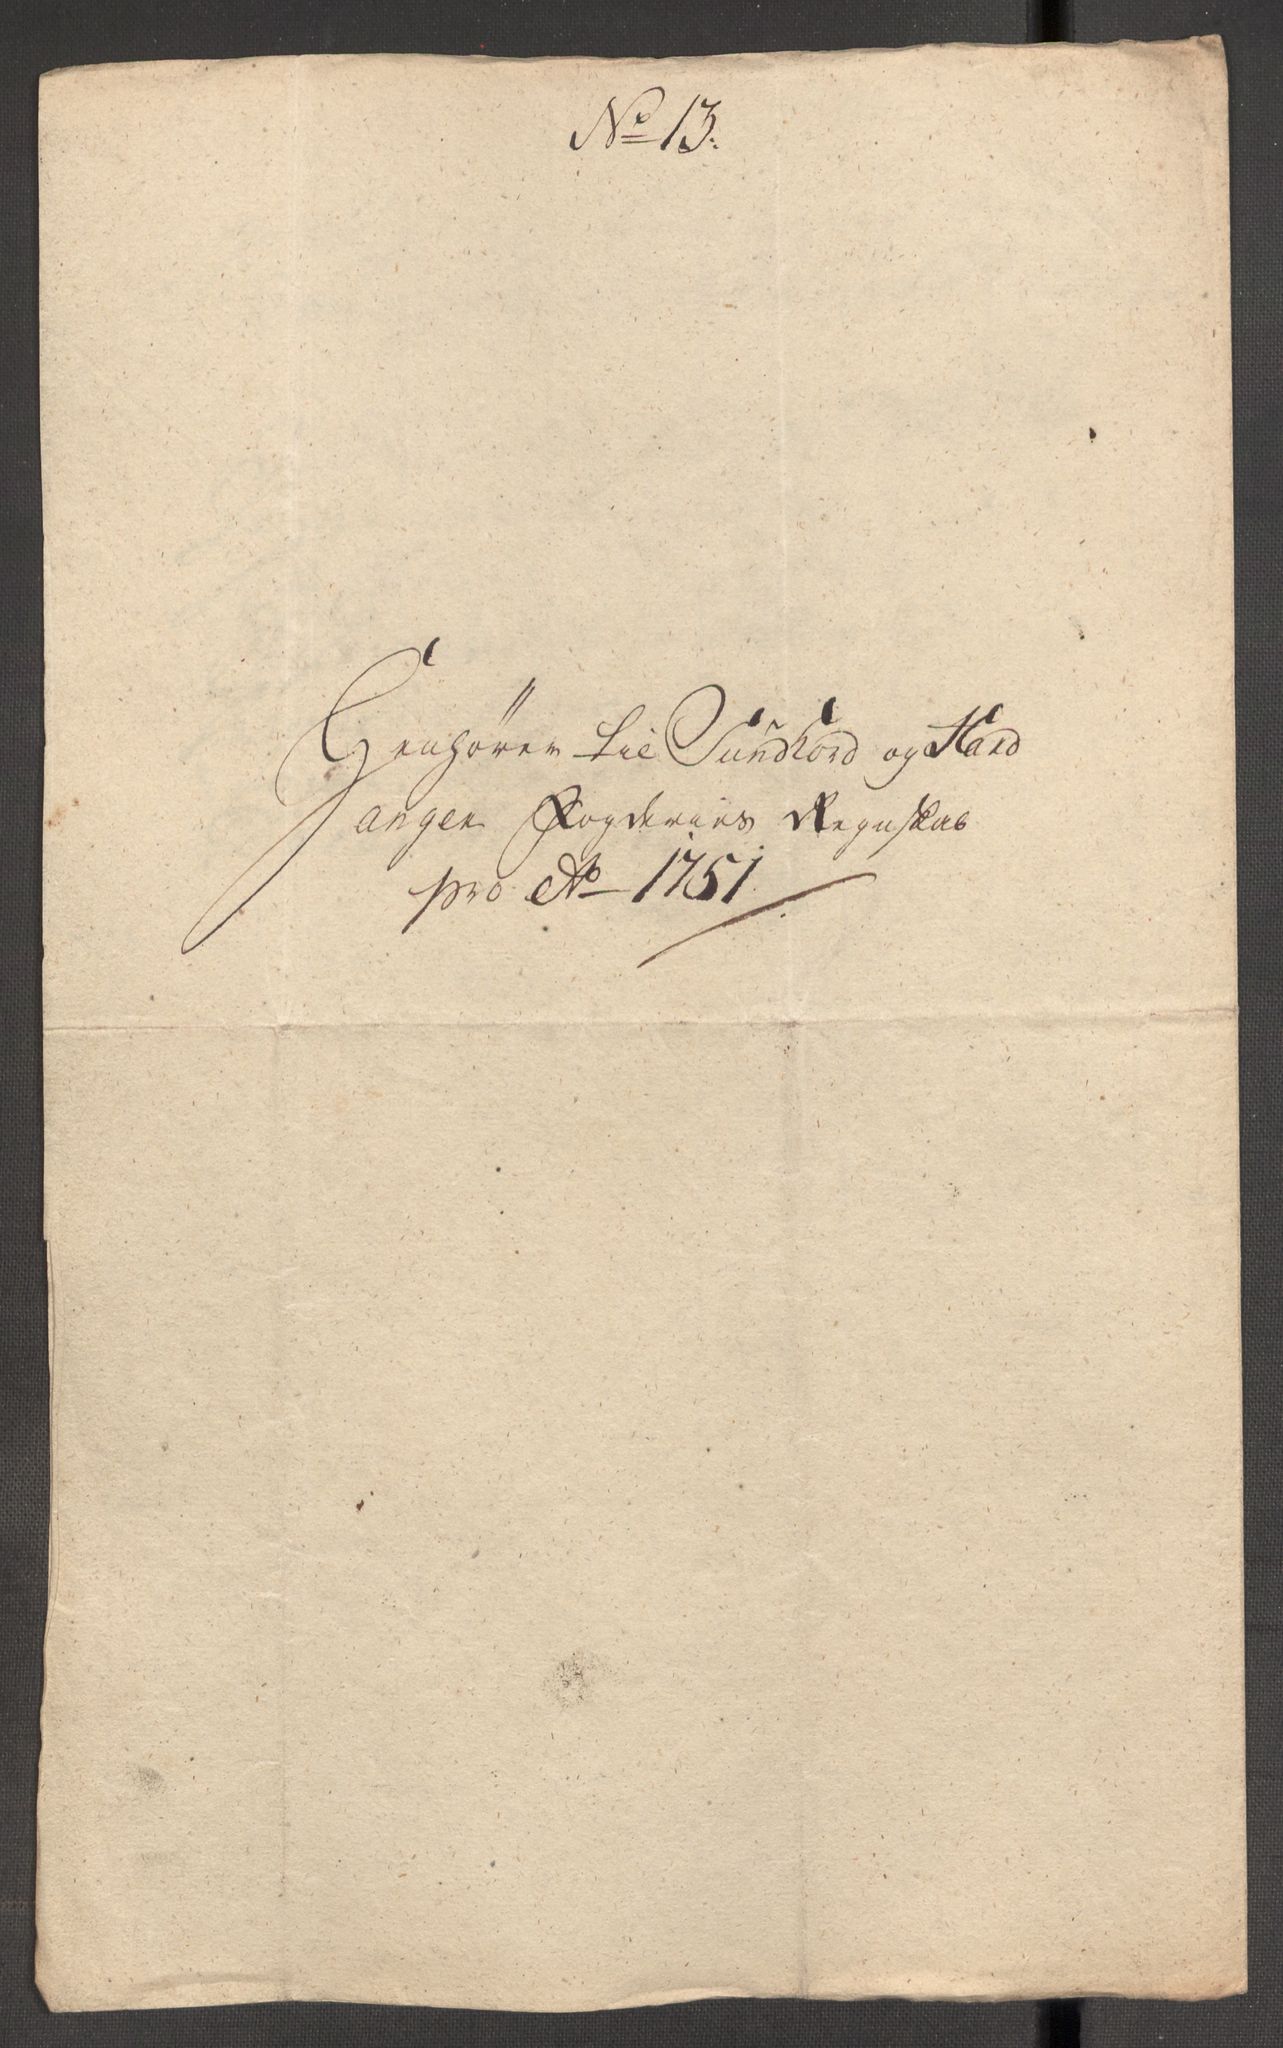 No 13.
Henhører til Sundhord og Hard
anger Fogderies Regnskab
pro Ao 1751